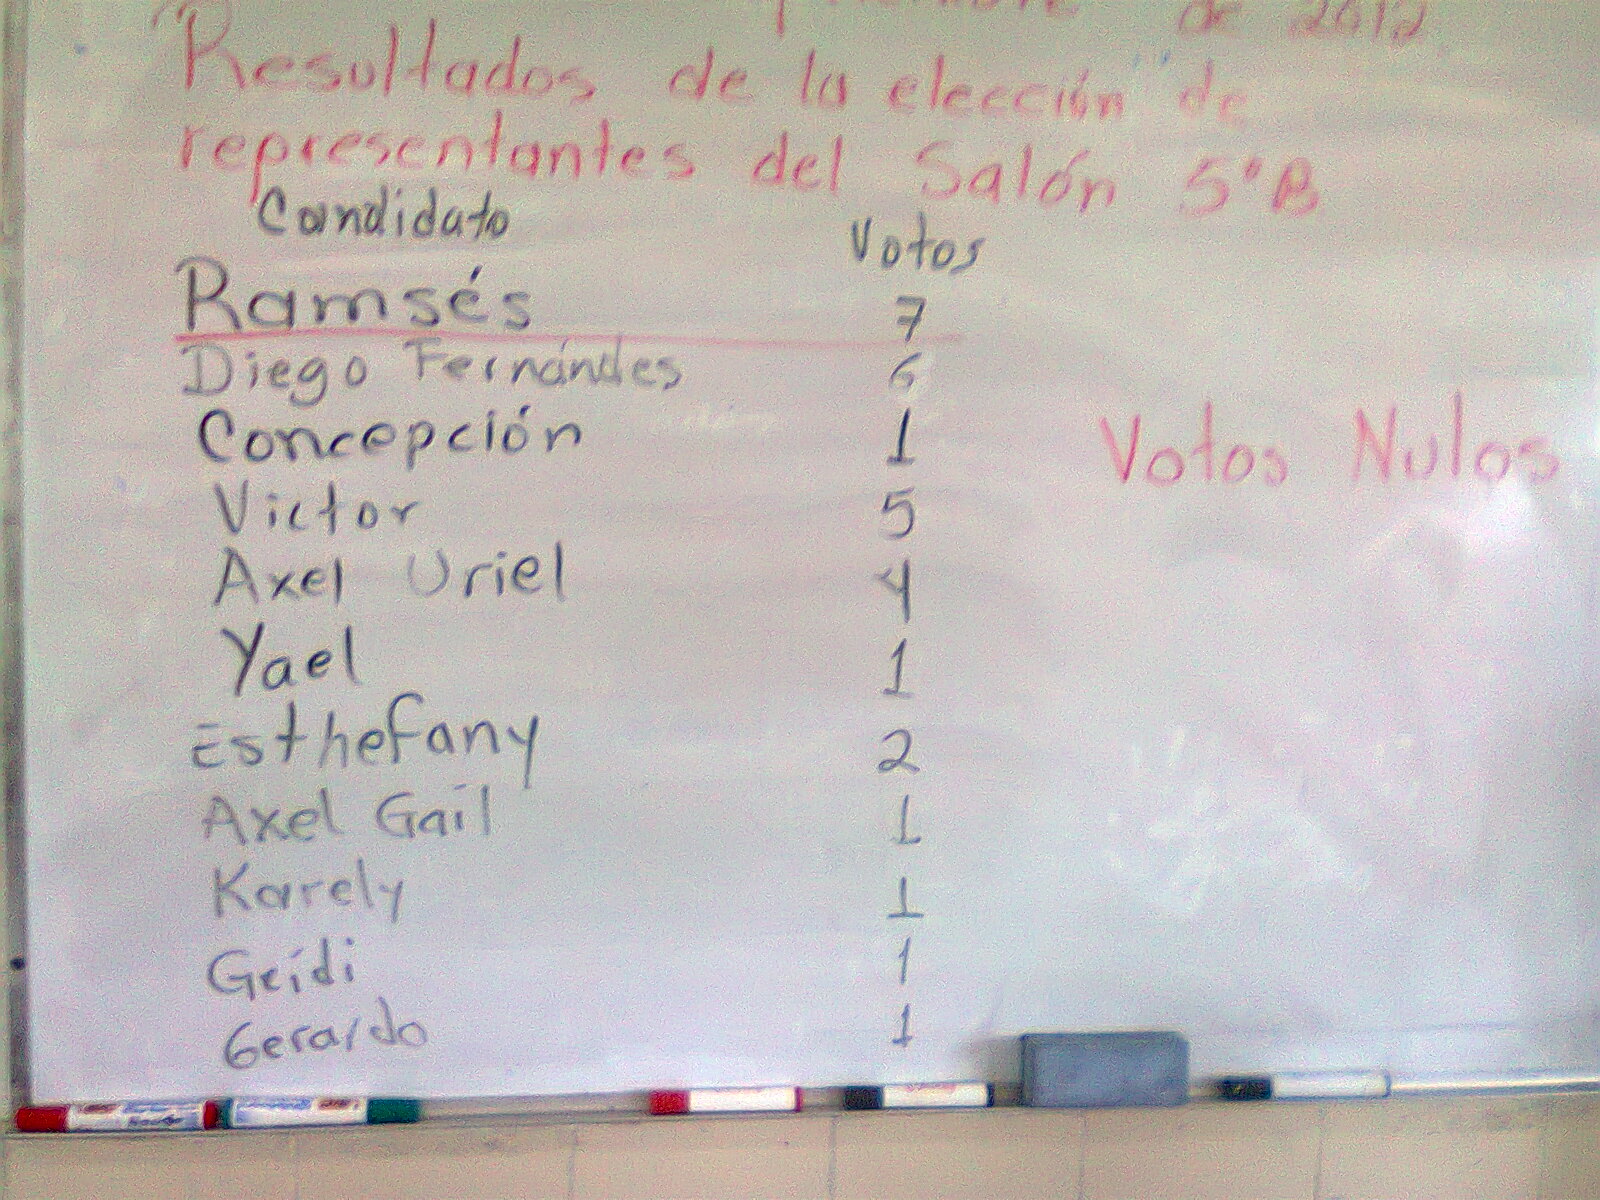 de 2012
"Resultados de la elección" de
representantes del Salón 5°B
Candidato Votos
Ramsés 7
Diego Fernándes 6
Concepción 1
Votos Nulos
Victor 5
Axel Uriel 4
Yael 1
Esthefany 2
Axel Gail 1
Karely 1
Geidi 1
Gerardo 1